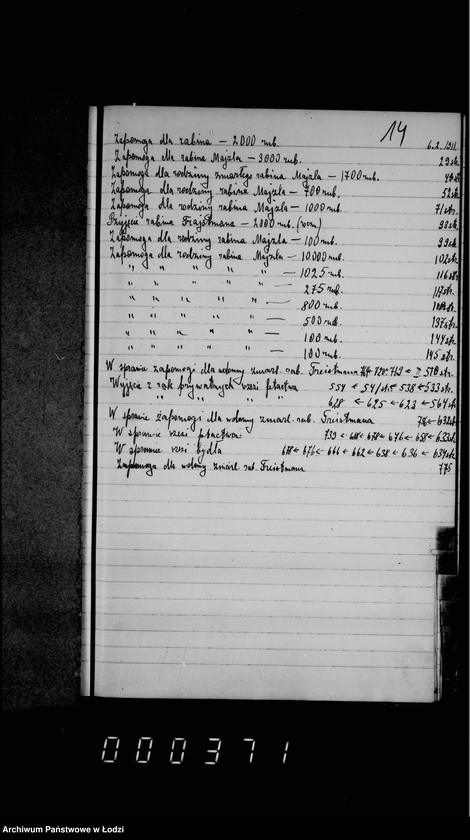 14
Zapomoga dla rabina — 2000 rub. 6.2.1911
Zapomoga dla rabina Majzla — 3000 rub. 29 str.
Zapomoga dla rodziny zmarłego rabina Majzla — 1700 rub.
Zapomoga dla rodziny rabina Majzla — 700 rub. 52 str.
Zapomoga dla rodziny rabina Majzla — 1000 rub. 71 str.
Przyjęcie rabina Frajstmana — 2000 rub.
Zapomoga dla rodziny rabina Majzla — 100 rub. 99 str.
Zapomoga dla rodziny rabina Majzla — 10.000 rub. 102 str.
" " " " " — 1025 rub. 116 str.
" " " " " — 275 rub. 117 str.
" " " " " — 800 rub.
" " " " " — 500 rub. 137 str.
" " " " " — 100 rub. 144 str.
" " " " " — 100 rub. 145 str.
W sprawie zapomogi dla wdowy zmarł. rab. Treistmana
Wyjęcie z rąk prywatnych rzezi ptactwa 554 ← 541 538 ← 533 str.
" " " " " 628 ← 625 ← 623 ← 564 str.
W sprawie zapomogi dla wdowy zmarł. rab. Treistmana
W sprawie rzezi ptactwa
W sprawie rzezi bydła 676 ← 666 ← 662 ← 638 ← 636 ← 634 str.
Zapomoga dla wdowy zmarł. rab. Treistmana 775
000371
Archiwum Państwowe w Łodzi